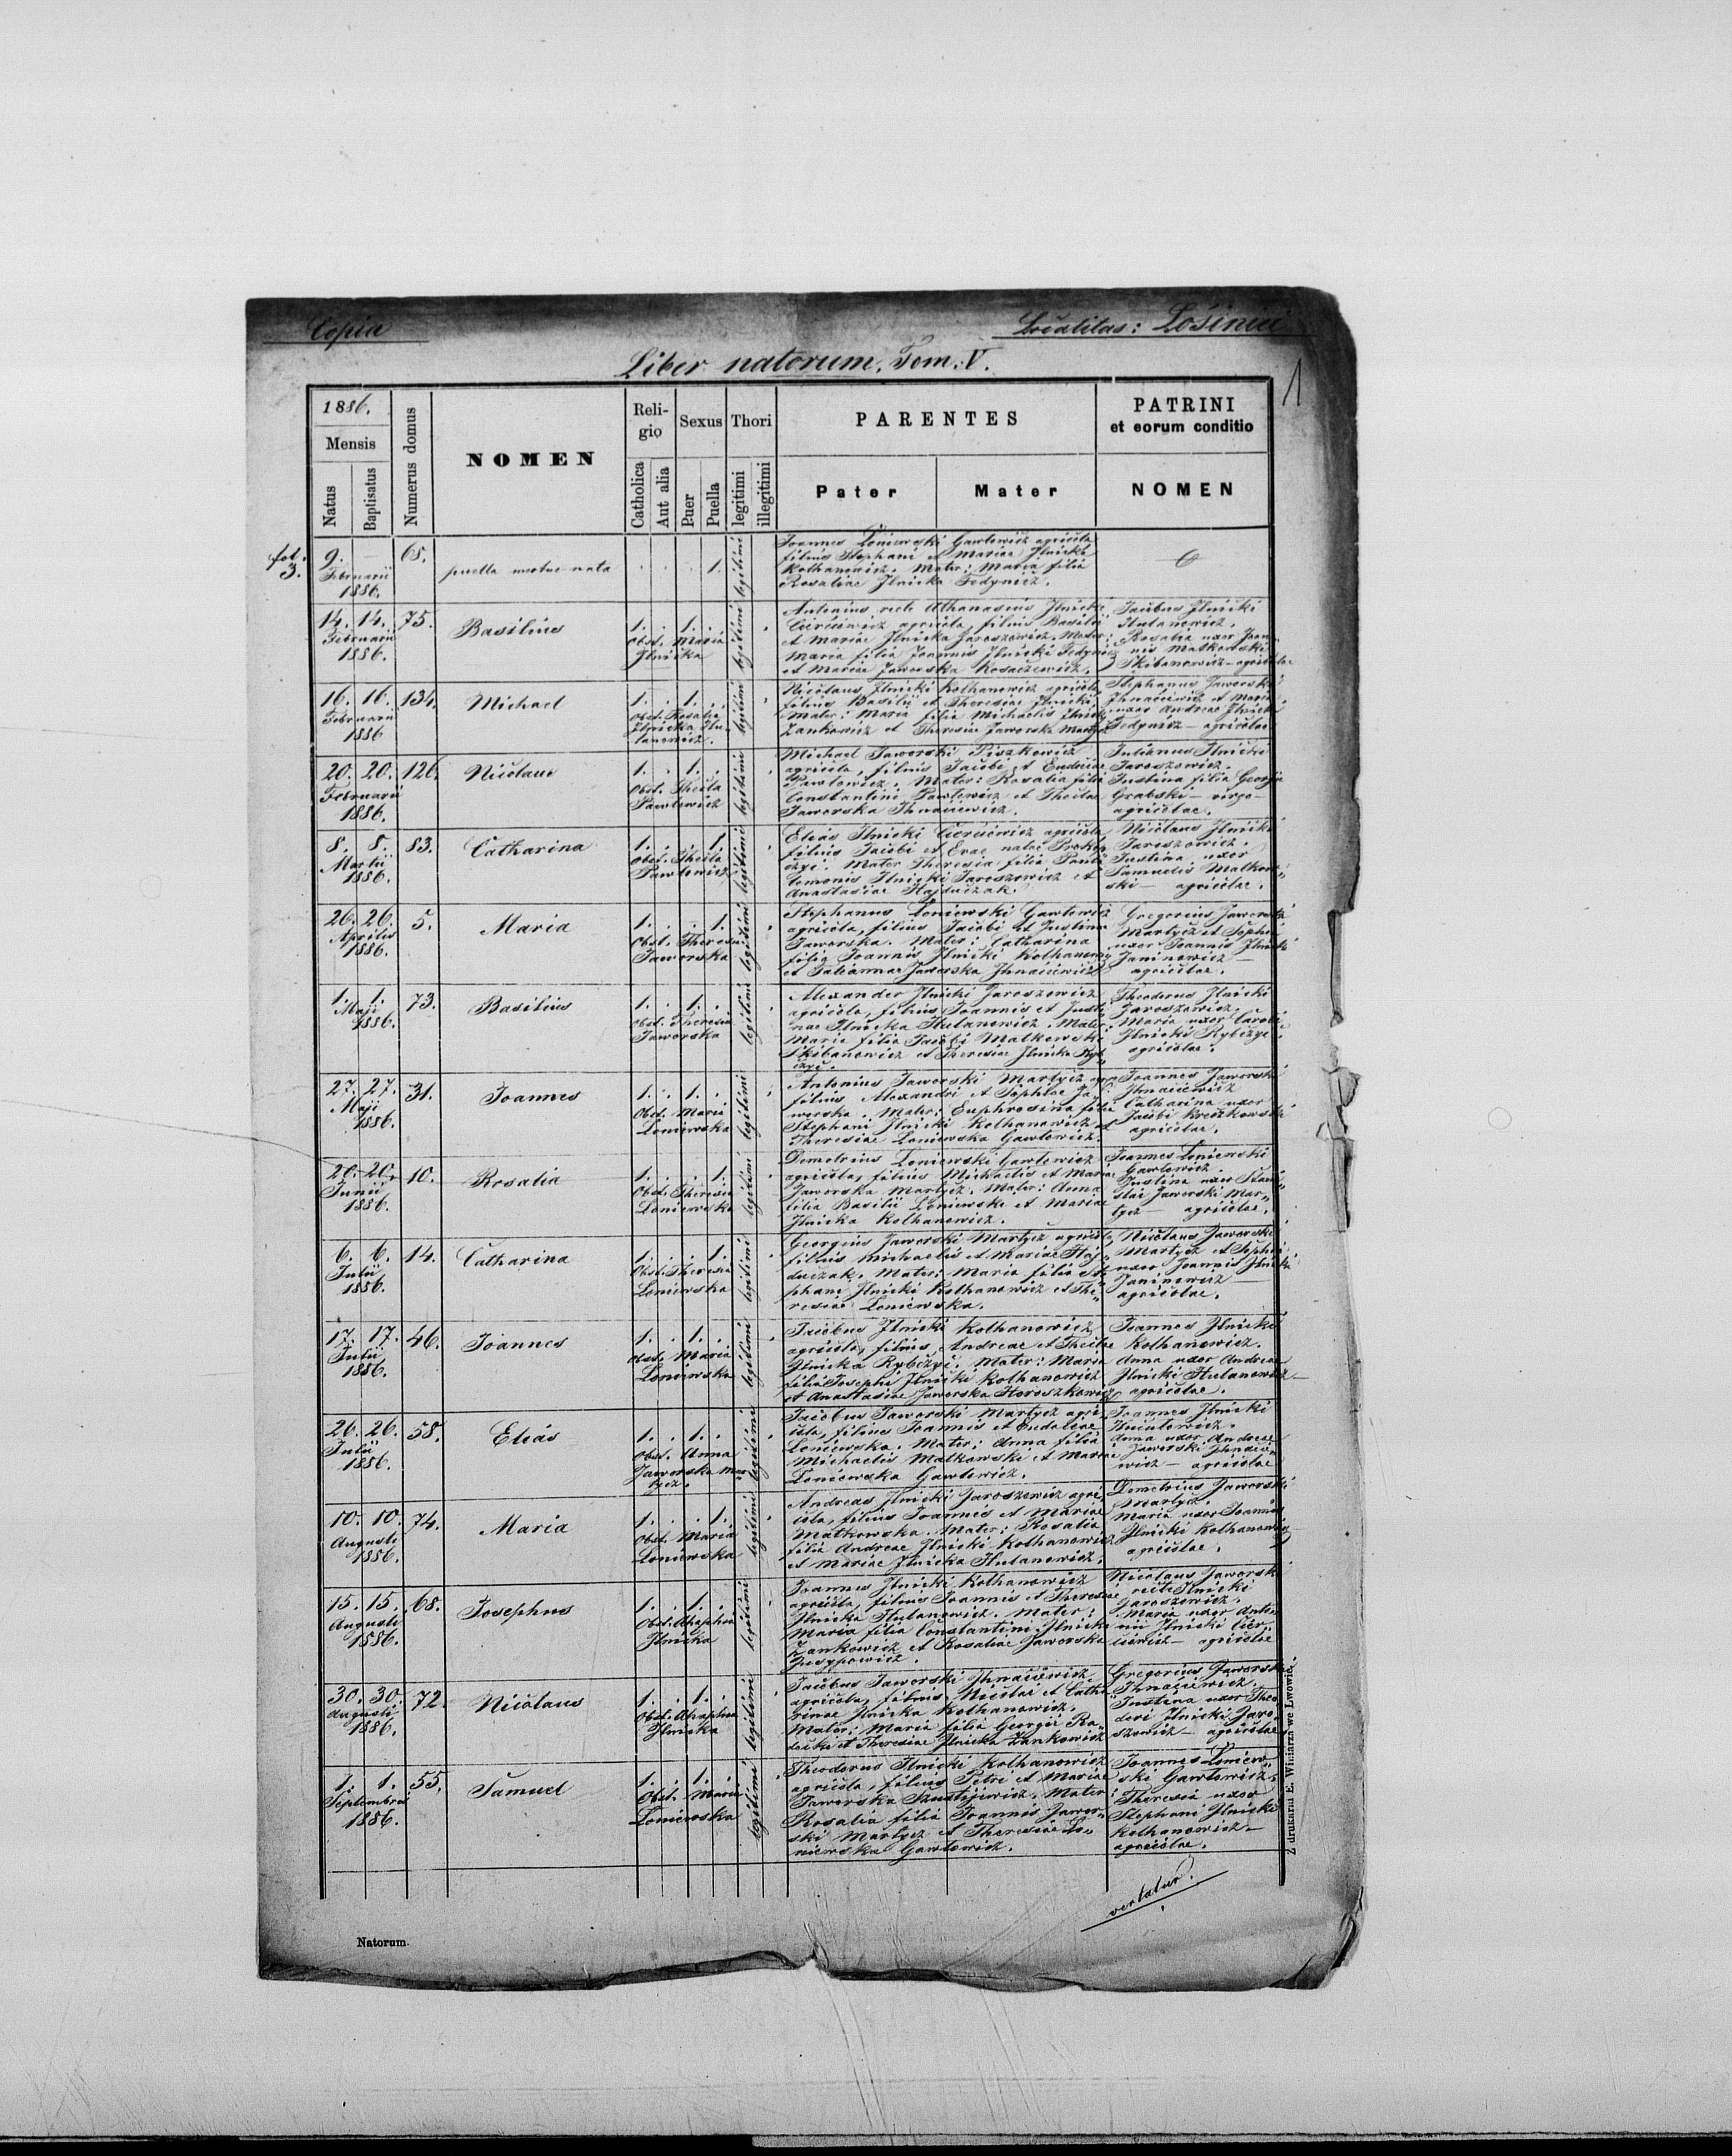 Copia
Localitas: Łosineci
Liber natorum. Tom. V.
1
1886.
Mensis
Natus
Baptisatus
Numerus domus
NOMEN
Religio
Catholica
Aut alia
Sexus
Puer
Puella
Thori
legitimi
illegitimi
PARENTES
Pater
Mater
PATRINI
et eorum conditio
NOMEN
fol. 3.
9. — 68.
Februarii
1886.
puella mortua nata
1.
legitimi
Joannes Łoniewski Gawłowicz agricola
filius Stephani et Mariae Jlnicka
Kołhanowicz. Mater: Maria filia
Rosaliae Jlnicka Fedynicz.
14. 14. 75.
Februarii
1886.
Basilius
1. . 1. .
Obst. Maria
Jlnicka
legitimi
Antonius recte Athanasius Jlnicki
Cierciewicz agricola, filius Basilii
et Mariae Jlnicka Jaroszowicz. Mater:
Maria filia Joannis Jlnicki Fedynicz
et Mariae Jaworska Kosaczewicz.
Jacobus Jlnicki
Hutanowicz.
Rosalia uxor Joannis
Matkowski
Skibanowicz – agricolae
16. 16. 134.
Februarii
1886
Michael
1. . 1. .
Obst. Rosalia
Jlnicka Hutanowicz.
legitimi
Nicolaus Jlnicki Kołhanowicz agricola
filius Basilii et Theresiae Jlnicki.
Mater: Maria filia Michaelis Jlnicki
Zankowicz et Theresiae Jaworska Martycz
Stephanus Jaworski
Jhnaciewicz et Maria
uxor Andreae Jlnicki
Fedynicz – agricolae
20. 20. 126.
Februarii
1886.
Nicolaus
1. . 1. .
Obst. Thecla
Pawłowicz
legitimi
Michael Jaworski Piszkowicz
agricola, filius Jacobi et Eudociae
Pawłowicz. Mater: Rosalia filia
Constantini Pawłowicz et Theclae
Jaworska Jhnaciewicz.
Julianus Jlnicki
Jaroszowicz.
Justina filia Georgii
Grabski – virgo –
agricolae.
8. 8. 83.
Martii
1886.
Catharina
1. . . 1.
Obst. Thecla
Pawłowicz
legitimi
Elias Jlnicki Cierciewicz agricola
filius Jacobi et Evae natae Prokopczyc.
Mater Theresia filia Pantalemonis
Jlnicki Jaroszowicz et
Anastasiae Hajduczak.
Nicolaus Jlnicki
Jaroszowicz.
Justina uxor
Samuelis Matkowski –
agricolae.
26. 26. 5.
Aprilis
1886.
Maria
1. . . 1.
Obst. Theresia
Jaworska
legitimi
Stephanus Łoniewski Gawłowicz
agricola, filius Jacobi et Justinae
Jaworska. Mater: Catharina
filia Joannis Jlnicki Kołhanowicz
et Tatiannae Jaworska Jhnaciewicz
Gregorius Jaworski
Martycz et Sophia
uxor Joannis Jlnicki
Janinowicz –
agricolae.
1. 1. 73.
Maji
1886.
Basilius
1. . 1. .
Obst. Theresia
Jaworska
legitimi
Alexander Jlnicki Jaroszowicz
agricola, filius Joannis et Justinae
Jlnicka Hutanowicz. Mater:
Maria filia Jacobi Matkowski
Skibanowicz et Theresiae Jlnicka Rybczyc.
Theodorus Jlnicki
Jaroszowicz.
Maria uxor Caroli
Jlnicki Rybczyc
agricolae.
27. 27. 31.
Maji
1886.
Joannes
1. . 1. .
Obst. Maria
Łoniewska
legitimi
Antonius Jaworski Martycz agr.
filius Alexandri et Sophiae Jaworska.
Mater: Euphrosina filia
Stephani Jlnicki Kołhanowicz et
Theresiae Łoniewska Gawłowicz.
Joannes Jaworski
Jhnaciewicz
Catharina uxor
Jacobi
agricolae.
20. 20. 10.
Junii
1886.
Rosalia
1. . . 1.
Obst. Theresia
Łoniewska
legitimi
Demetrius Łoniewski Gawłowicz
agricola, filius Michaelis et Mariae
Jaworska Martycz. Mater: Anna
filia Basilii Łoniewski et Mariae
Jlnicka Kołhanowicz.
Joannes Łoniewski
Gawłowicz.
Justina uxor
Jaworski Martycz –
agricolae.
6. 6. 14.
Julii
1886.
Catharina
1. . . 1.
Obst. Theresia
Łoniewska
legitimi
Georgius Jaworski Martycz agricola
filius Michaelis et Mariae Hajduczak.
Mater: Maria filia Stephani
Jlnicki Kołhanowicz et Theresiae
Łoniewska.
Nicolaus Jaworski
Martycz et Sophia
uxor Joannis Jlnicki
Janinowicz –
agricolae.
17. 17. 46.
Julii
1886.
Joannes
1. . 1. .
Obst. Maria
Łoniewska
legitimi
Jacobus Jlnicki Kołhanowicz
agricola, filius Andreae et Theclae
Jlnicka Rybczyc. Mater: Maria
filia Josephi Jlnicki Kołhanowicz
et Anastasiae Jaworska Horoszkowicz
Joannes Jlnicki
Kołhanowicz.
Anna uxor Andreae
Jlnicki Hutanowicz –
agricolae.
26. 26. 58.
Julii
1886.
Elias
1. . 1. .
Obst. Anna
Jaworska Martycz.
legitimi
Jacobus Jaworski Martycz agricola,
filius Joannis et Eudociae
Łoniewska. Mater: Anna filia
Michaelis Matkowski et Mariae
Łoniewska Gawłowicz.
Joannes Jlnicki
Anna uxor Andreae
Jaworski Jhnaciewicz –
agricolae
10. 10. 74.
Augusti
1886.
Maria
1. . . 1.
Obst. Maria
Łoniewska
legitimi
Andreas Jlnicki Jaroszowicz agricola,
filius Joannis et Mariae
Matkowska. Mater: Rosalia
filia Andreae Jlnicki Kołhanowicz
et Mariae Jlnicka Hutanowicz.
Demetrius Jaworski
Martycz.
Maria uxor Joannis
Jlnicki Kołhanowicz
agricolae.
15. 15. 68.
Augusti
1886.
Josephus
1. . 1. .
Obst. Ahaphia
Jlnicka
legitimi
Joannes Jlnicki Kołhanowicz
agricola, filius Joannis et Theresiae
Jlnicka Hutanowicz. Mater:
Maria filia Constantini Jlnicki
Zankowicz et Rosaliae Jaworska
Jusypowicz.
Nicolaus Jaworski
recte Jlnicki
Jaroszowicz.
Maria uxor Antonii
Jlnicki Cierciewicz –
agricolae
30. 30. 72.
Augusti
1886.
Nicolaus
1. . 1. .
Obst. Ahaphia
Jlnicka
legitimi
Jacobus Jaworski Jhnaciewicz
agricola, filius Nicolai et Catharinae
Jlnicka Kołhanowicz.
Mater: Maria filia Georgii Radecki
et Theresiae Jlnicka Zankowicz
Gregorius Jaworski
Jhnaciewicz.
Justina uxor Theodori
Jlnicki Jaroszowicz –
agricolae
1. 1. 55.
Septembris
1886.
Samuel
1. . 1. .
Obst. Maria
Łoniewska
legitimi
Theodorus Jlnicki Kołhanowicz
agricola, filius Petri et Mariae
Jaworska Kustijiwicz. Mater:
Rosalia filia Joannis Jaworski
Martycz et Theresiae Łoniewska
Gawłowicz.
Joannes Łoniewski
Gawłowicz.
Theresia uxor
Stephani Jlnicki
Kołhanowicz –
agricolae.
vertatur.
Natorum.
Z drukarni E. Winiarza we Lwowie.